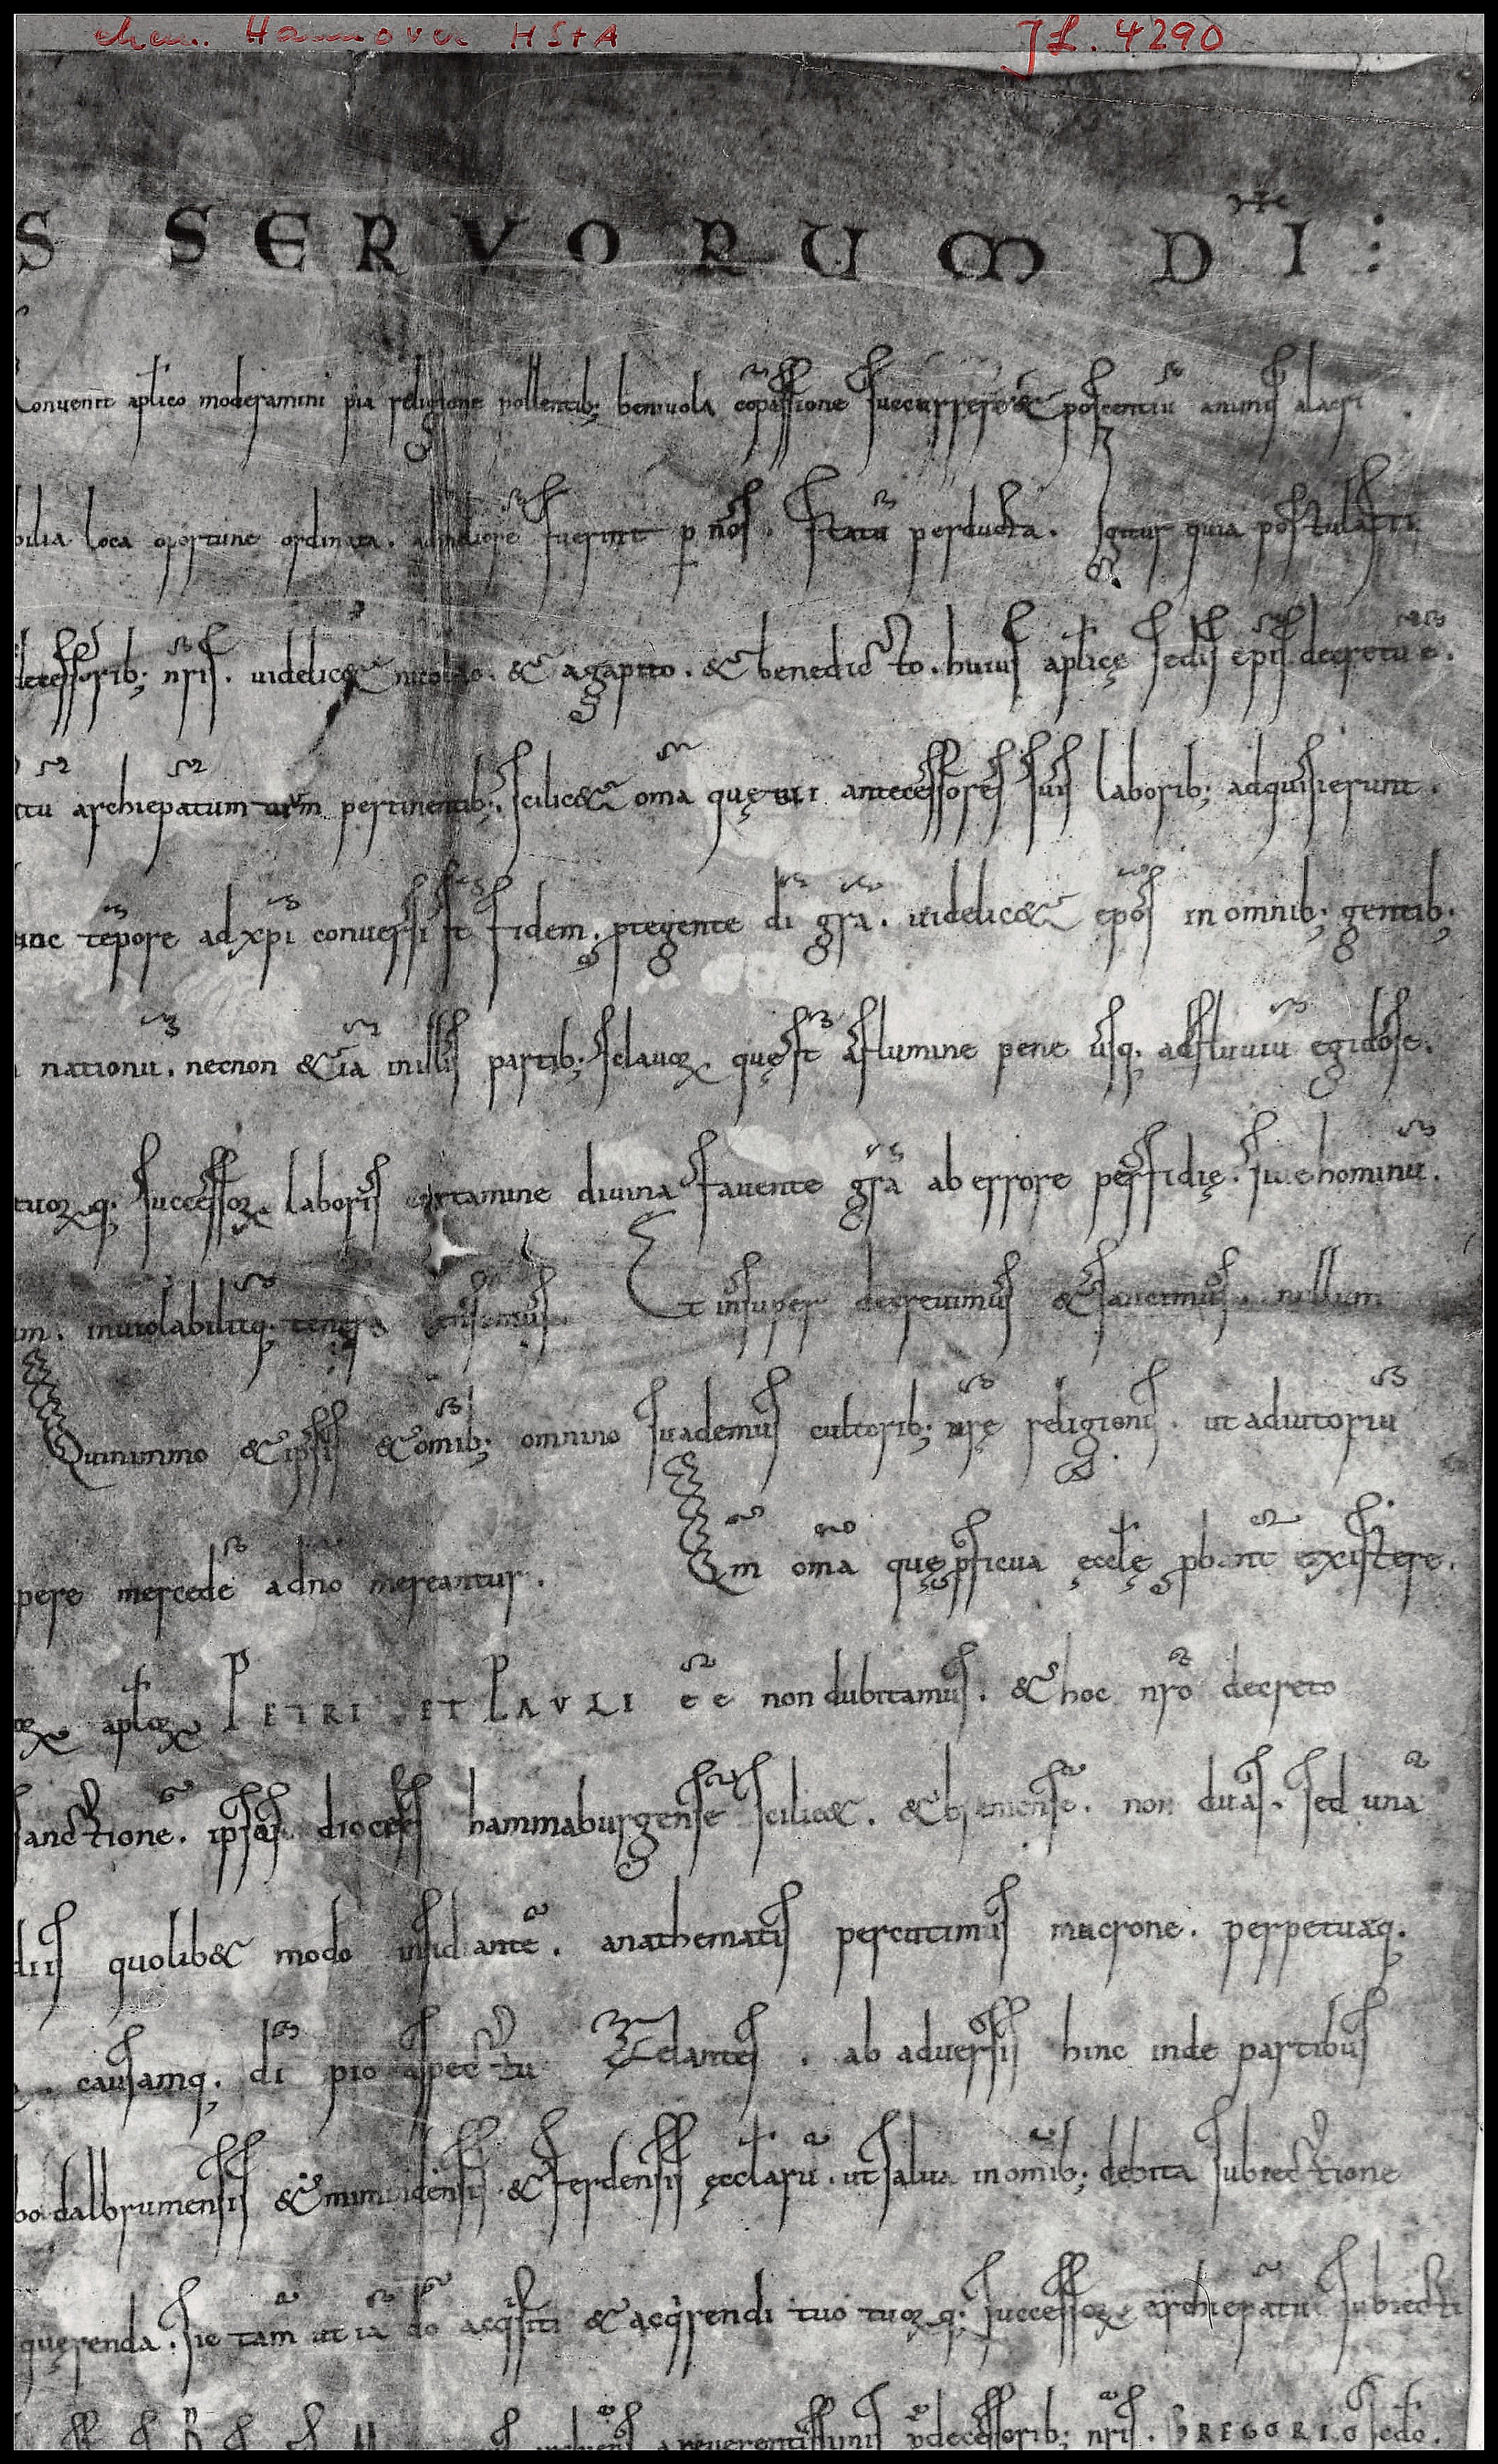 ehem. Hannover HStA JL. 4290
S SERVORUM DI :
Conuenit aplico moderamini pia religione pollentib; beniuola copassione succurrere & poscentiu animis alacri
bilia loca oportune ordinata. admeliore fuerint p nos. statu perducta. Igitur quia postulasti
decessorib; nris. uidelic& nicolao. & agapito. & benedicto. huius aplicę sedis epis decretu e.
archiepatum urm pertinentib;. scilic& oma quę tui antecessores suis laborib; adquisierunt.
unc tepore ad xpi conuersi st fidem. ptegente di gra. uidelic& epos in omnib; gentib;
nationu. necnon & ia in illis partib; sclauoꝝ. quę st a flumine pene usq. ad fluuiu egidore.
tuoꝝ q; successoꝝ laboris certamine diuina fauente gra ab errore perfidię. siue hominu.
m. inuiolabilitq; tenere censemus. Et insuper decreuimus & sancimus. nullum
Quinimmo & ipsis & omib; omnino suademus cultorib; nrę religionis. ut adiutoriu
pere mercede adno mereantur. Qm oma quę pficua ęcclę pbant existere.
oꝝ aploꝝ PETRI ET PAVLI ee non dubitamus. & hoc nro decreto
sanctione. ipsas dioceses hammaburgense scilic&. & bremense. non duas. sed una
diis quolib& modo insidiante. anathematis percutimus mucrone. perpetuaq.
. causamq. di pio aspectu Zelantes. ab aduersis hinc inde partibus
bodalbrumensis & mimidensis. & ferdensis ęcclaru. ut salua in omib; debita subiectione
quęrenda. sic tam ut ia do acqsiti & acqrendi tuo tuoꝝ q; successoꝝ archiepatu subiecti
a reuerentissimis pdecessorib; nris. GREGORIO sedo.